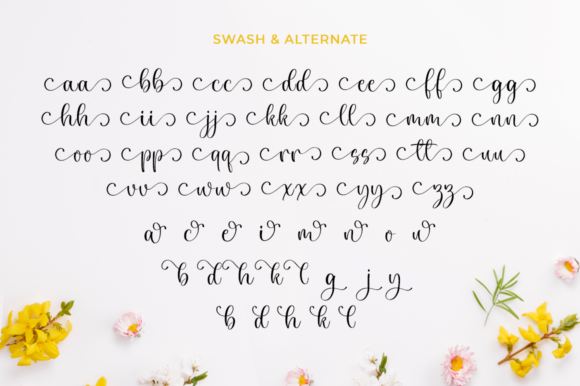 SWASH & ALTERNATE
aa bb cc dd ee ff gg
hh ii jj kk ll mm nn
oo pp qq rr ss tt uu
vv ww xx yy zz
a c e i m n o u
b d h k l g j y
b d h k l